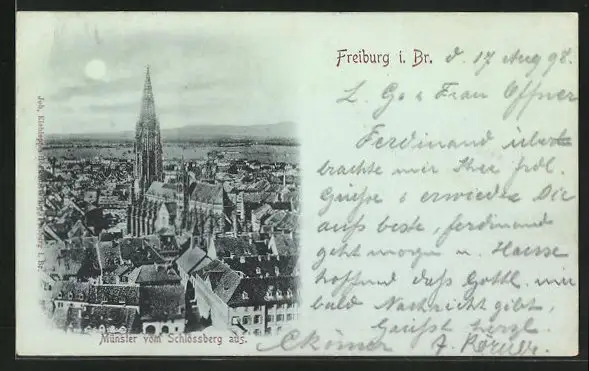 Freiburg i. Br. d. 17 Aug 98.
L. G. & Frau Offner
Ferdinand über
brachte mir Ihre frdl.
Grüße & erwiedre Die
aufs beste, ferdinand
geht morgen n. Hause
hoffend daß Gottl. mir
bald Nachricht gibt,
Grüßt herzl.
Münster vom Schlossberg aus.